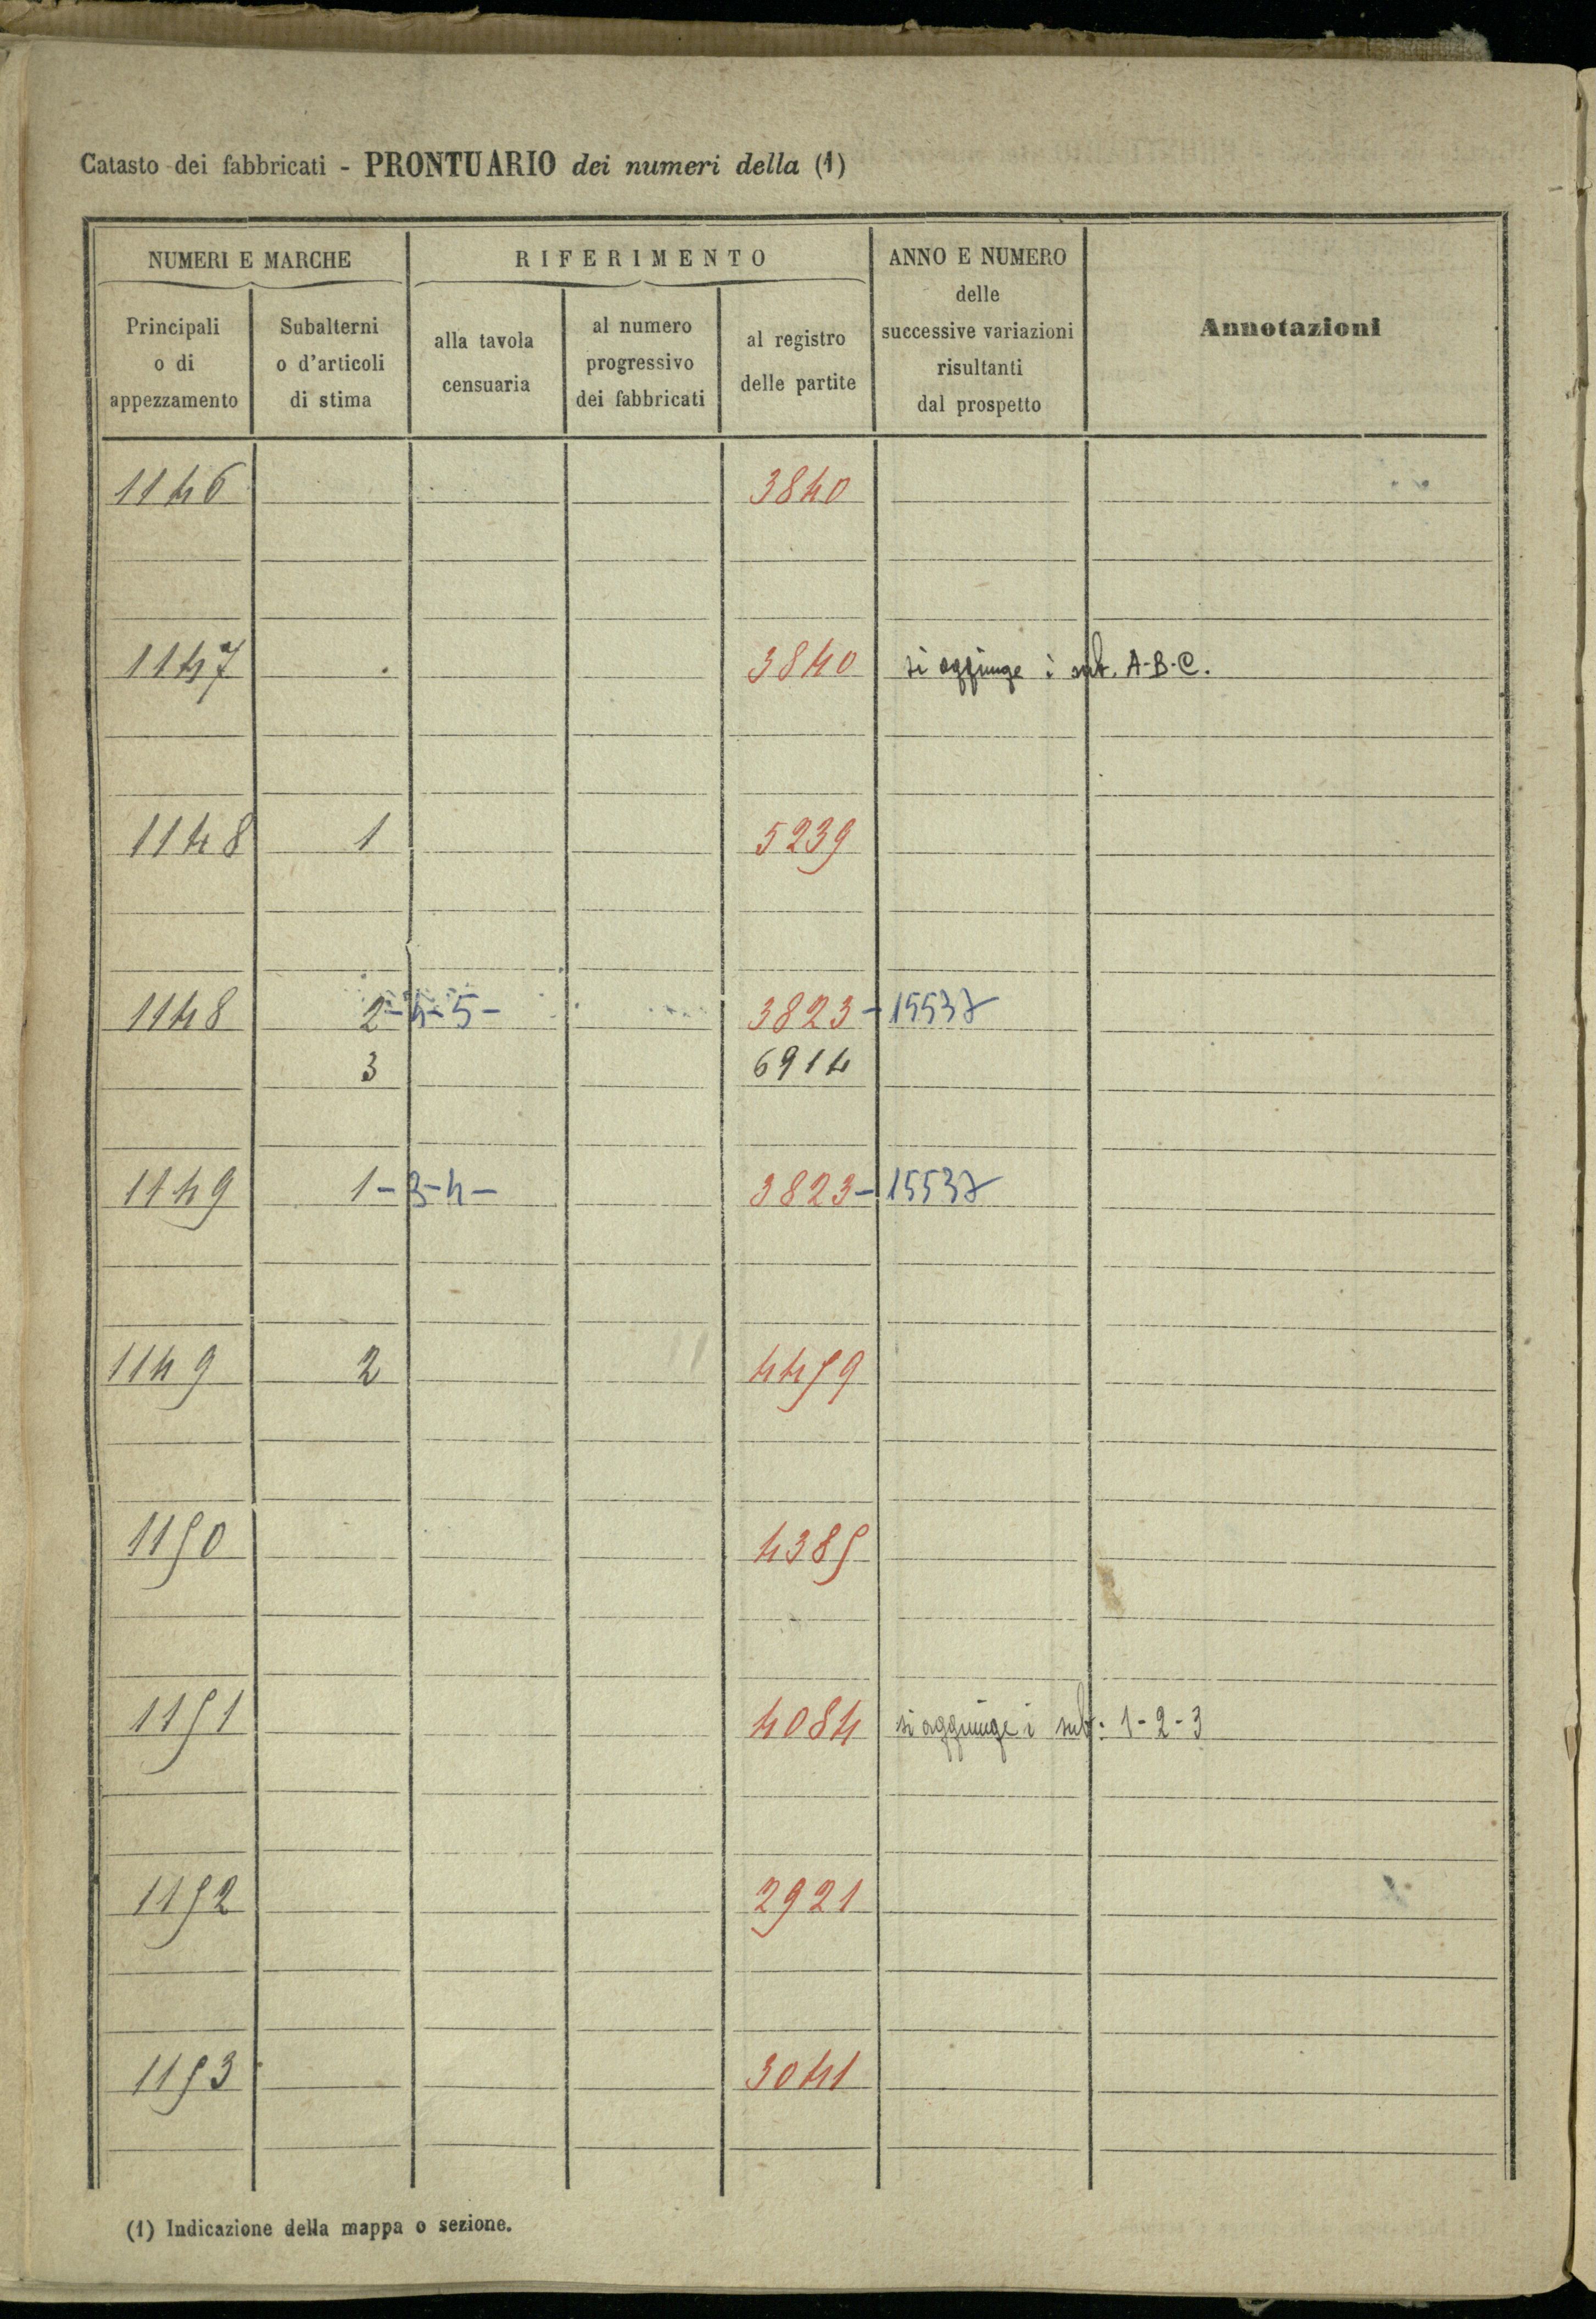 Catasto dei fabbricati - PRONTUARIO dei numeri della (1)
NUMERI E MARCHE
RIFERIMENTO
ANNO E NUMERO
delle
successive variazioni
risultanti
dal prospetto
Annotazioni
Principali
o di
appezzamento
Subalterni
o d'articoli
di stima
alla tavola
censuaria
al numero
progressivo
dei fabbricati
al registro
delle partite
1146 3840
1147 3840 si aggiunge i sub. A-B-C.
1148 1 5239
1148 2-4-5- 3823-15537
3 6914
1149 1-3-4- 3823-15537
1149 2 4459
1150 4385
1151 4084 si aggiunge i sub: 1-2-3
1152 2921
1153 3041
(1) Indicazione della mappa o sezione.